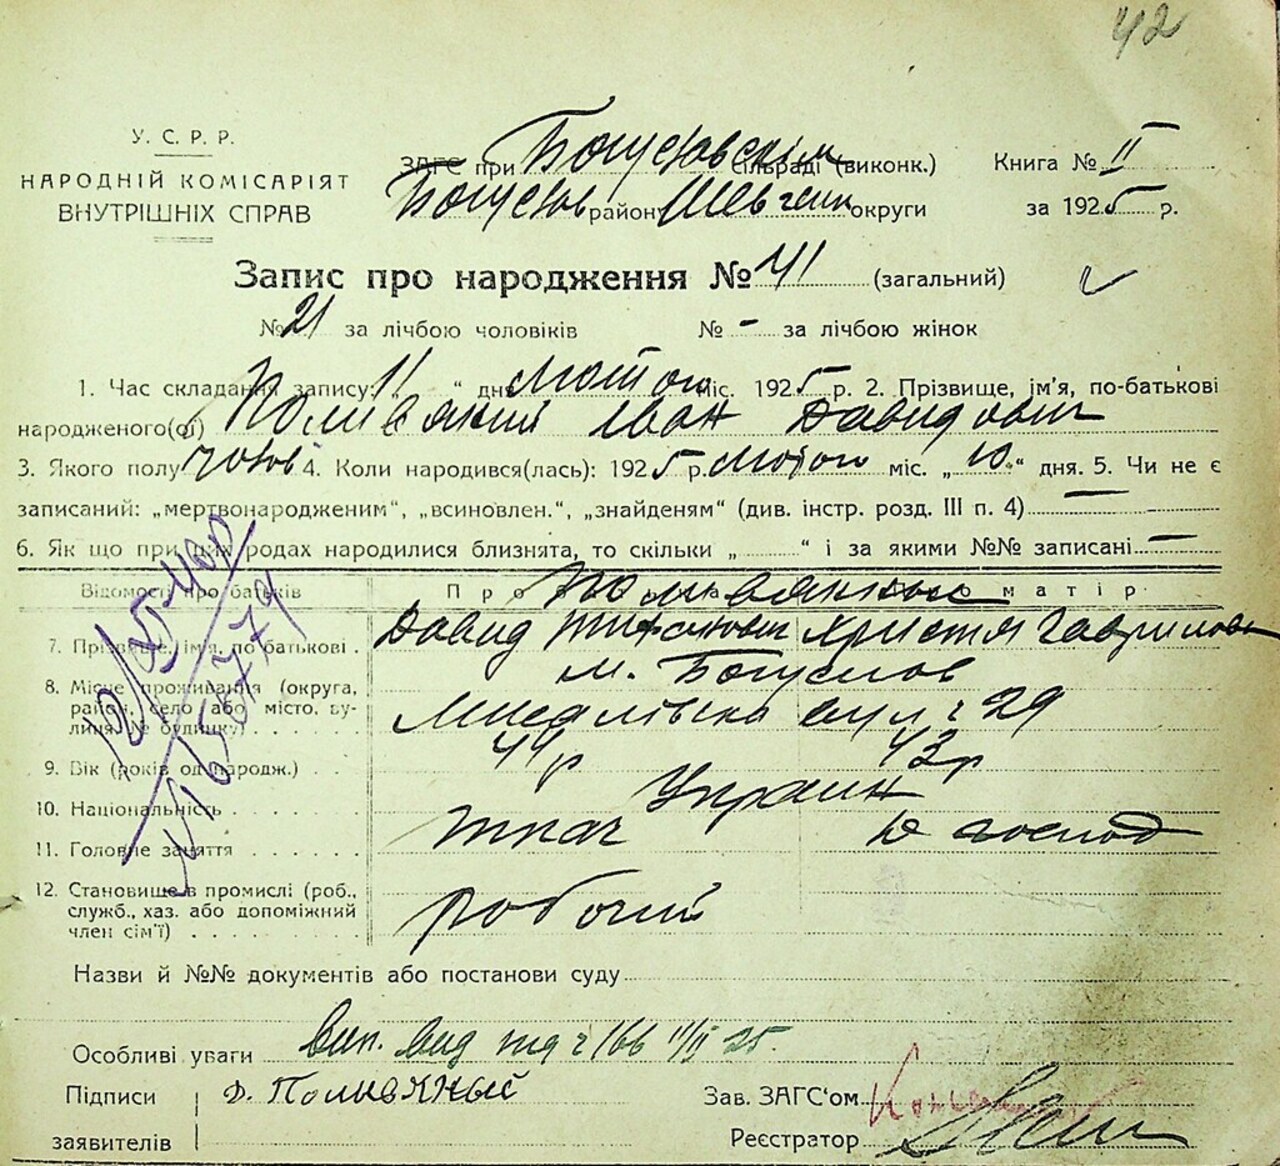 42
У. С. Р. Р.
НАРОДНІЙ КОМІСАРІЯТ
ВНУТРІШНІХ СПРАВ
ЗАГС при Богуславским сільраді (виконк.) Книга № II
Богуслав району Шевченк округи за 1925 р.
Запис про народження № 41 (загальний)
№ 21 за лічбою чоловіків № - за лічбою жінок
1. Час складання запису 11 " дня Лютого міс. 1925 р. 2. Прізвище, ім'я, по-батькові
народженого(ої) Поливяний Іван Давидович
3. Якого полу чолов 4. Коли народився(лась): 1925 р. Лютого міс. „ 10 " дня. 5. Чи не є
записаний: „мертвонародженим“, „всиновлен.“, „знайденям“ (див. інстр. розд. III п. 4) —
6. Як що при цих родах народилися близнята, то скільки „ “ і за якими №№ записані —
Відомості про батьків Про матір
7. Прізвище, ім'я, по батькові . Давид Христя Гаврилова
8. Місце проживання (округа, м. Богуслов
район, село або місто, вулиця, № будинку) вул ч 29
9. Вік (років од народж.) . . 44 р 43 р
10. Національність Украин
11. Головне заняття ткач
12. Становище в промислі (роб.,
служб., хаз. або допоміжний робочий
член сім'ї)
Назви й №№ документів або постанови суду
Особливі уваги Вип. вид ч 166 11/II 25.
Підписи Д. Поливяный Зав. ЗАГС‘ом
заявителів Реєстратор